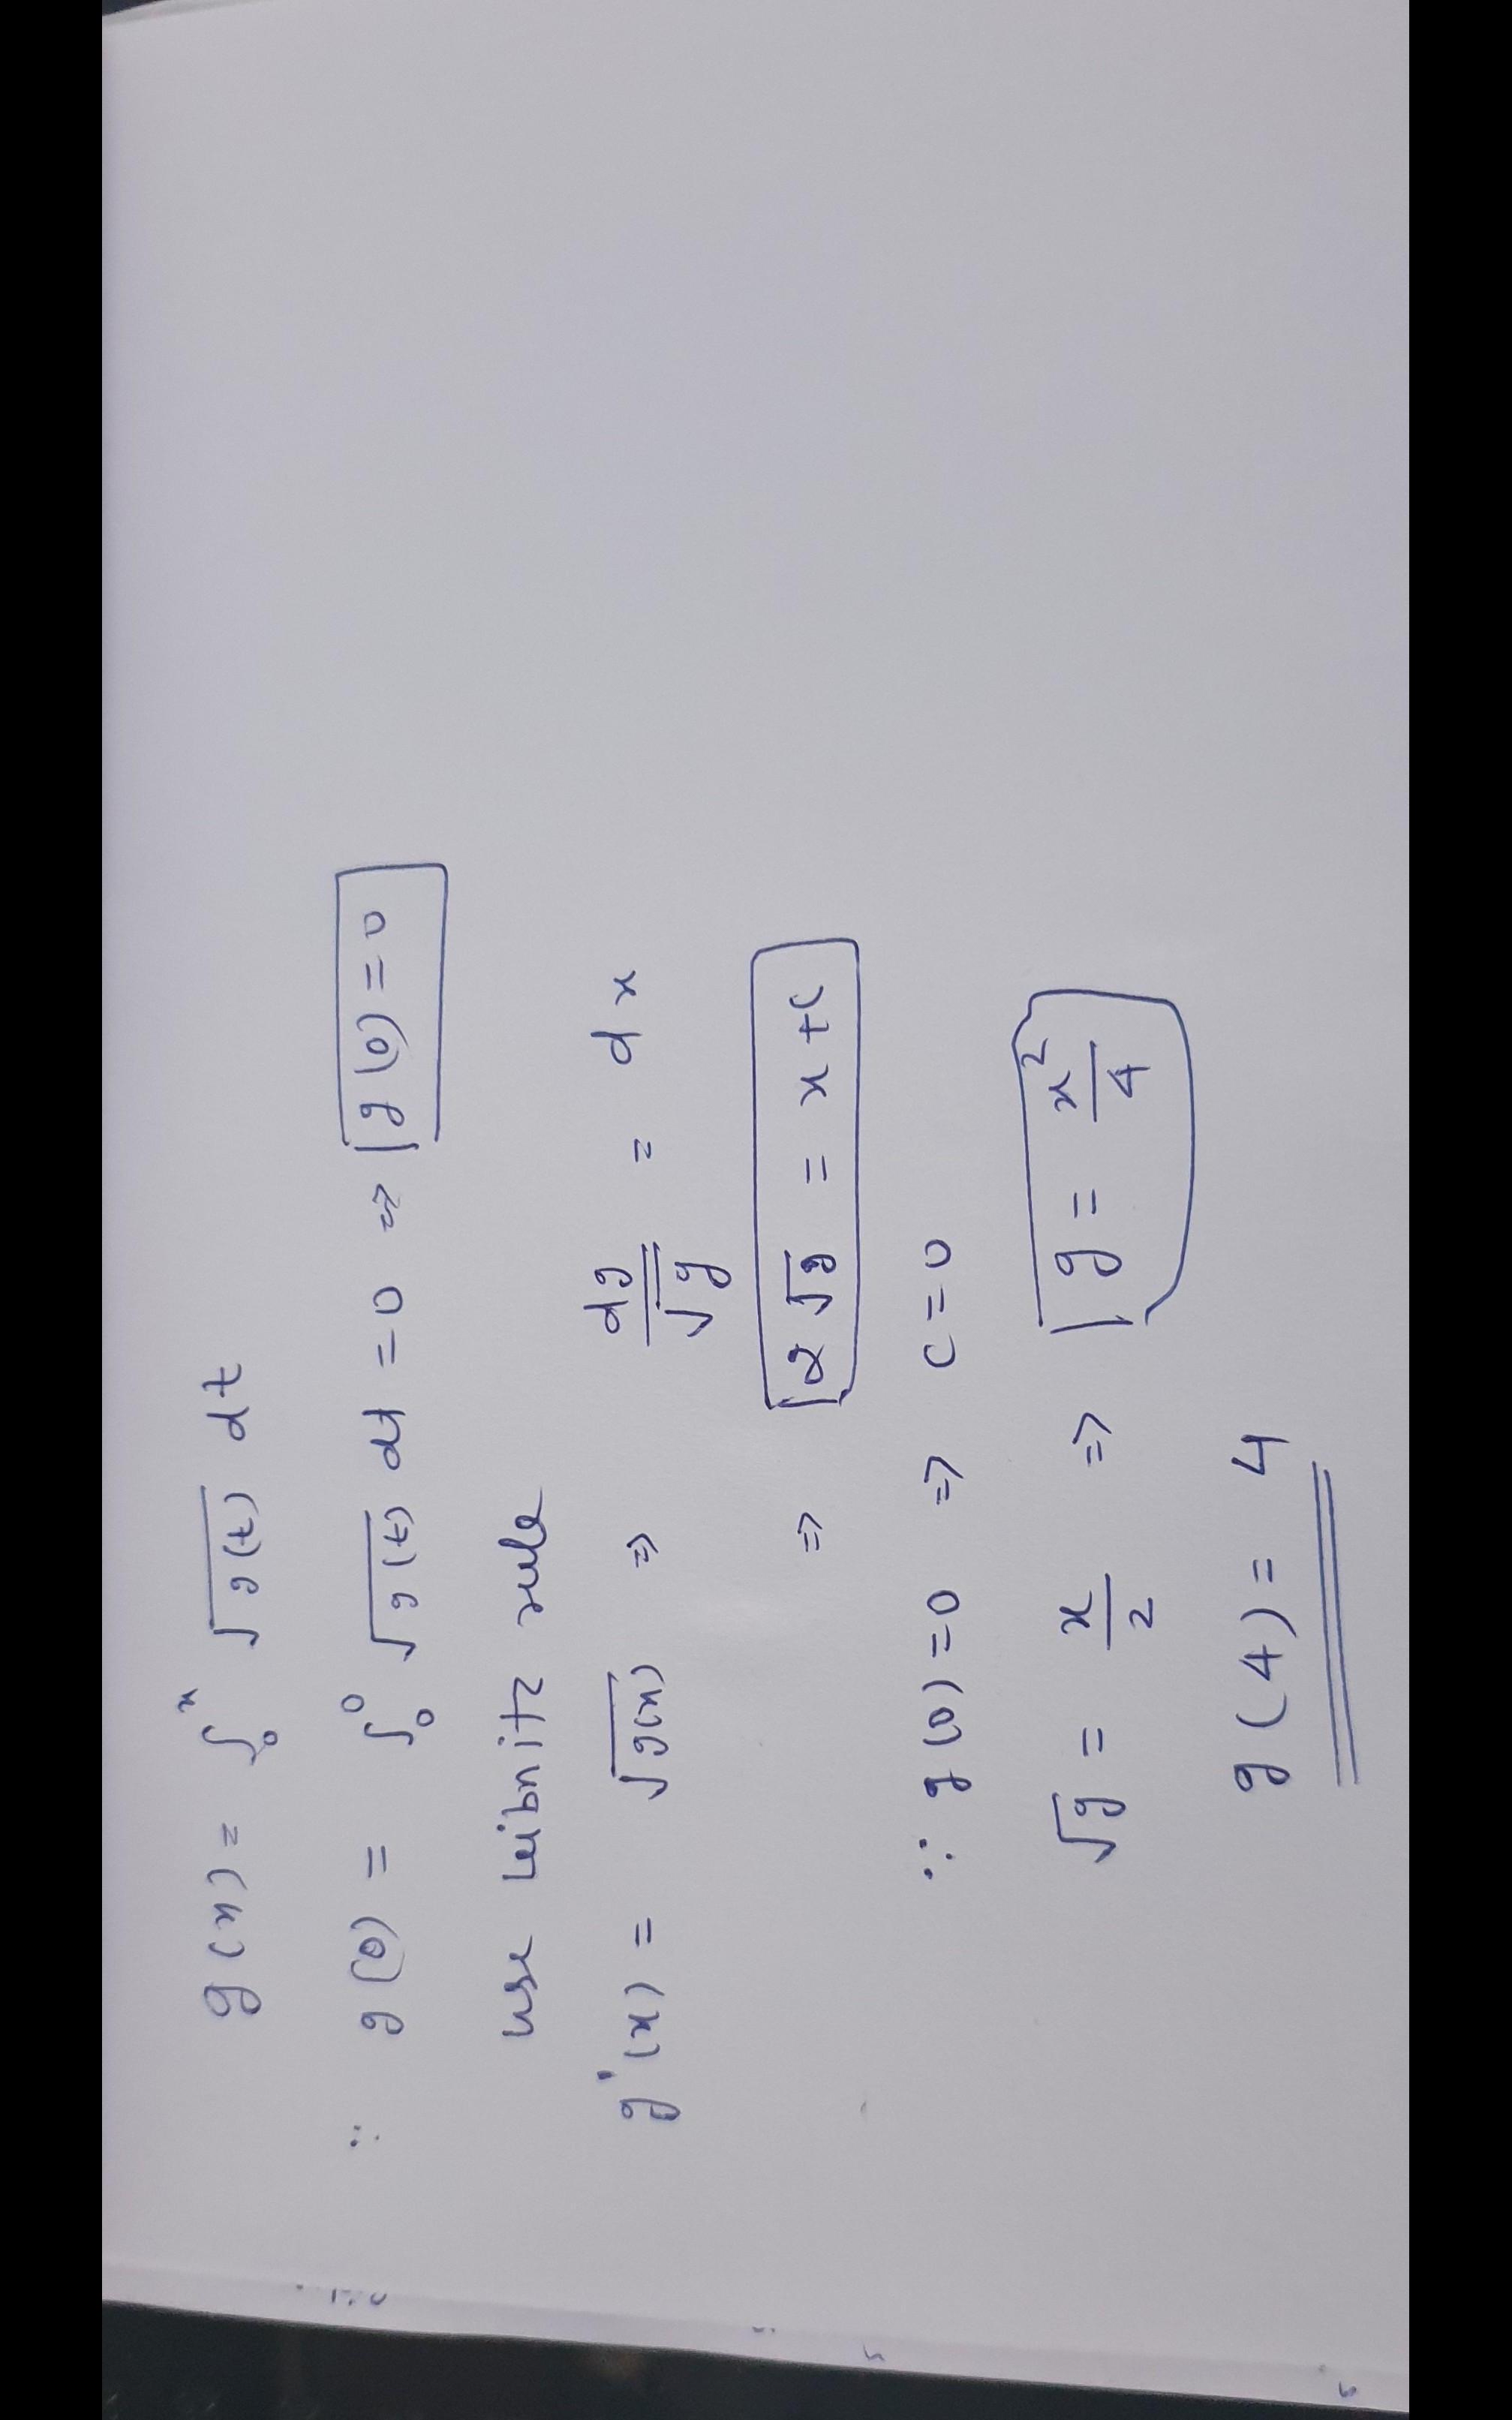 g(x) = ∫₀ˣ √g(t) dt
∴ g(0) = ∫₀⁰ √g(t) dt = 0 ⇒ g(0) = 0
use Leibnitz rule
g'(x) = √g(x) ⇒ dg/√g = dx
⇒ 2√g = x + c
∵ g(0) = 0 ⇒ c = 0
√g = x/2 ⇒ g = x²/4
g(4) = 4